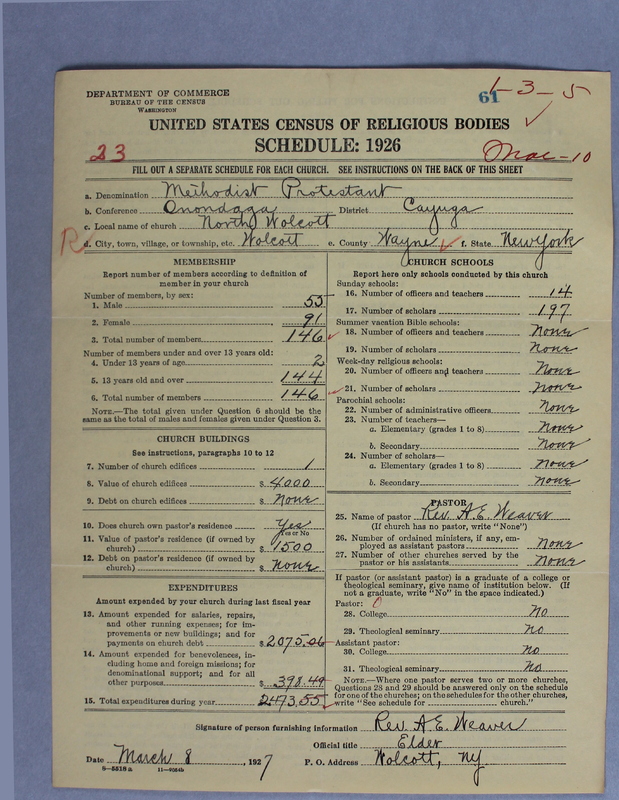 DEPARTMENT OF COMMERCE
BUREAU OF THE CENSUS
WASHINGTON
61 1-3-5
UNITED STATES CENSUS OF RELIGIOUS BODIES
SCHEDULE: 1926
23
Mac-10
FILL OUT A SEPARATE SCHEDULE FOR EACH CHURCH. SEE INSTRUCTIONS ON THE BACK OF THIS SHEET
a. Denomination Methodist Protestant
b. Conference Onondaga District Cayuga
c. Local name of church North Wolcott
R d. City, town, village, or township, etc. Wolcott e. County Wayne f. State New York
MEMBERSHIP
Report number of members according to definition of
member in your church
Number of members, by sex:
1. Male 55
2. Female 91
3. Total number of members 146
Number of members under and over 13 years old:
4. Under 13 years of age 2
5. 13 years old and over 144
6. Total number of members 146
NOTE.—The total given under Question 6 should be
same as the total of males and females given under Question 3.
CHURCH BUILDINGS
See instructions, paragraphs 10 to 12
7. Number of church edifices 1
8. Value of church edifices $ 4000
9. Debt on church edifices $ none
10. Does church own pastor's residence Yes
Yes or No
11. Value of pastor's residence (if owned by
church) $ 1500
12. Debt on pastor's residence (if owned by
church) $ none
EXPENDITURES
Amount expended by your church during last fiscal year
13. Amount expended for salaries, repairs,
and other running expenses; for im-
provements or new buildings; and for
payments on church debt $ 2075.06
14. Amount expended for benevolences, in-
cluding home and foreign missions; for
denominational support; and for all
other purposes $ 398.49
15. Total expenditures during year 2473.55
CHURCH SCHOOLS
Report here only schools conducted by this church
Sunday schools:
16. Number of officers and teachers 14
17. Number of scholars 197
Summer vacation Bible schools:
18. Number of officers and teachers None
19. Number of scholars None
Week-day religious schools:
20. Number of officers and teachers None
21. Number of scholars None
Parochial schools:
22. Number of administrative officers None
23. Number of teachers—
a. Elementary (grades 1 to 8) None
b. Secondary None
24. Number of scholars—
a. Elementary (grades 1 to 8) None
b. Secondary none
PASTOR
25. Name of pastor Rev. A.E. Weaver
(If church has no pastor, write "None")
26. Number of ordained ministers, if any, em-
ployed as assistant pastors none
27. Number of other churches served by the
pastor or his assistants None
If pastor (or assistant pastor) is a graduate of a college or
theological seminary, give name of institution below. (If
not a graduate, write "No" in the space indicated.)
Pastor: 0
28. College No
29. Theological seminary No
Assistant pastor:
30. College No
31. Theological seminary No
NOTE.—Where one pastor serves two or more churches,
Questions 28 and 29 should be answered only on the schedule
for one of the churches; on the schedules for the other churches,
write "See schedule for church."
Signature of person furnishing information Rev. A.E. Weaver
Official title Elder
Date March 8, 1927 P. O. Address Wolcott, NY.
8—5518a 11—9054b